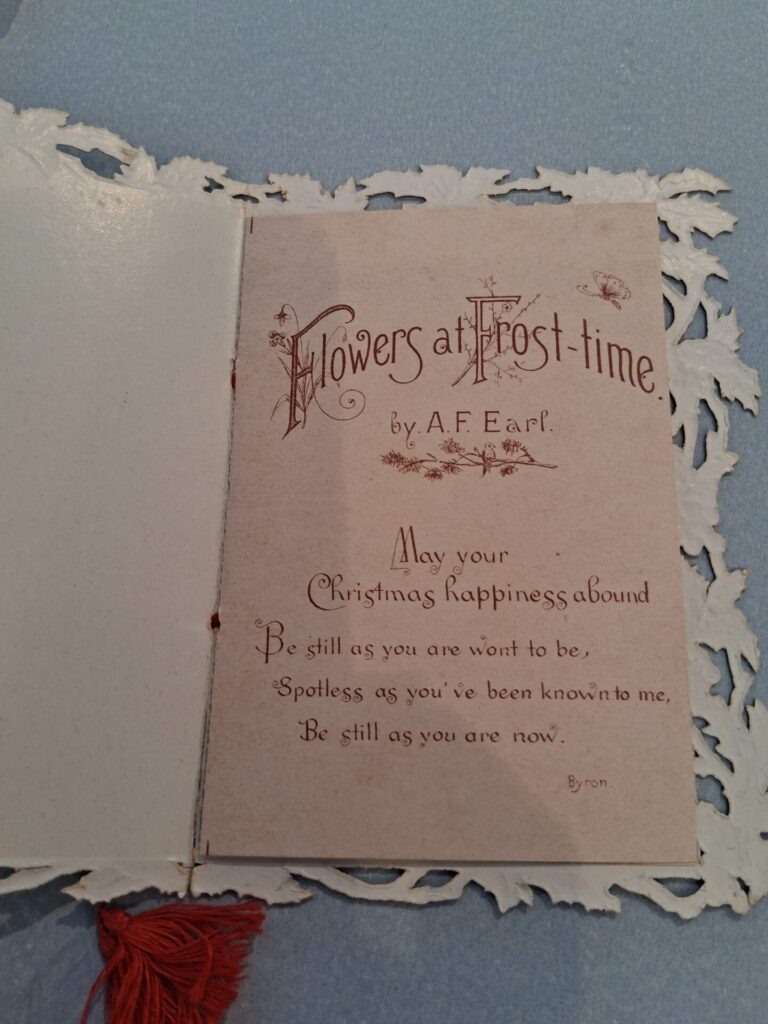 Flowers at Frost-time.
by. A. F. Earl.
May your
Christmas happiness abound
Be still as you are wont to be,
Spotless as you've been known to me,
Be still as you are now.
Byron.